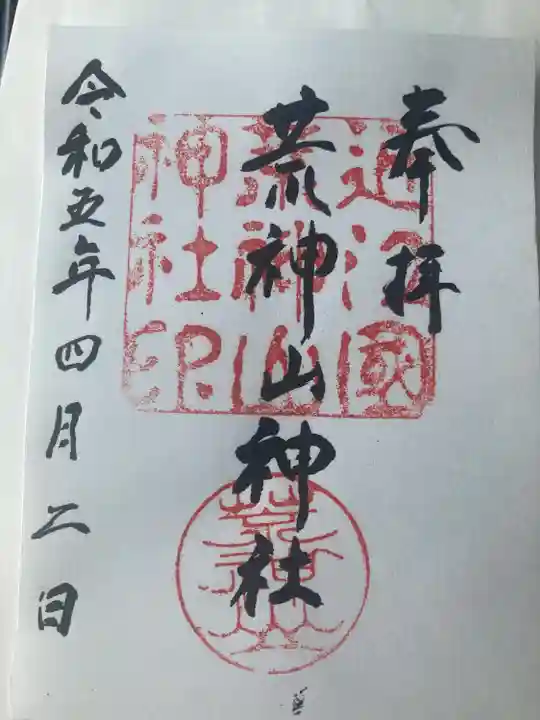 奉拝
荒神山神社
令和五年四月二日
近江國
荒神山
神社印
荒神山